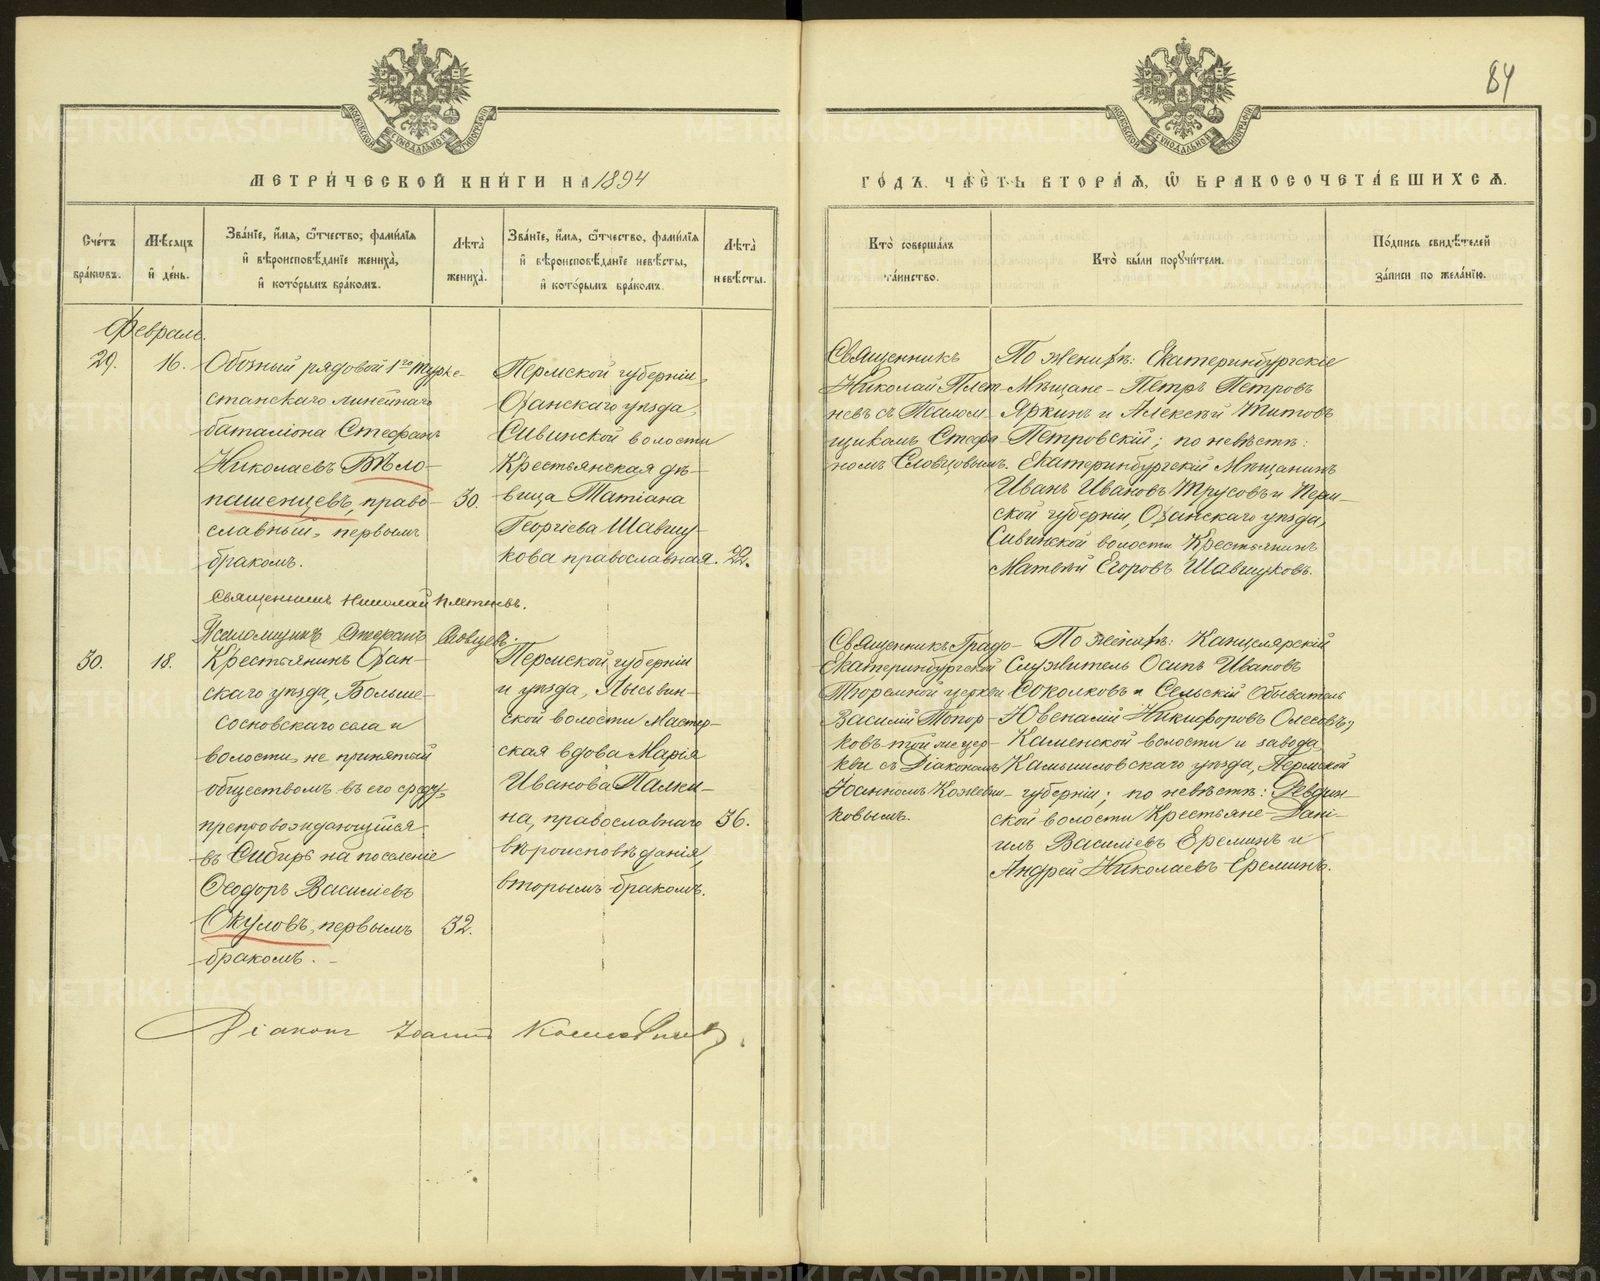 84
МЕТРИЧЕСКОЙ КНИГИ НА 1894
ГОДЪ. ЧАСТЬ ВТОРАЯ, Ѡ БРАКОСОЧЕТАВШИХСЯ.
Счетъ браковъ.
Мѣсяцъ и день.
Званіе, имя, отчество, фамилія и вѣроисповѣданіе жениха, и которымъ бракомъ.
Лѣта жениха.
Званіе, имя, отчество, фамилія и вѣроисповѣданіе невѣсты, и которымъ бракомъ.
Лѣта невѣсты.
Кто совершалъ таинство.
Кто были поручители.
Подпись свидѣтелей записи по желанію.
Февраль.
29.
16.
Обозный рядовой 1го Турке-
станскаго линейнаго
баталіона Стефанъ
Николаевъ Бѣло-
пашенцевъ, право-
славный, первымъ
бракомъ.
30.
Пермской губерніи,
Оханскаго уѣзда,
Сивинской волости
Крестьянская дѣ-
вица Татіана
Георгіева Шавшу-
кова православная.
22.
Священникъ
Николай Плет-
невъ съ Псалом-
щикомъ Стефа-
номъ Словцовымъ.
По женихѣ: Екатеринбургскіе
Мѣщане - Петръ Петровъ
Яркинъ и Алексѣй Титовъ
Петровскій; по невѣстѣ:
Екатеринбургскій Мѣщанинъ
Иванъ Ивановъ Трусовъ и Перм-
ской губерніи, Оханскаго уѣзда,
Сивинской волости Крестьянинъ
Матвѣй Егоровъ Шавшуковъ.
Священникъ Николай Плетневъ.
Псаломщикъ Стефанъ Словцевъ.
30.
18.
Крестьянинъ Охан-
скаго уѣзда, Больше-
сосновскаго села и
волости, не принятый
обществомъ въ его среду,
препровождающійся
въ Сибирь на поселеніе
Ѳеодоръ Василіевъ
Окуловъ, первымъ
бракомъ.
32.
Пермской губерніи
и уѣзда, Лысьвин-
ской волости Мастер-
ская вдова Марія
Иванова Палки-
на, православнаго
вѣроисповѣданія,
вторымъ бракомъ.
36.
Священникъ Градо-
Екатеринбургской
Тюремной церкви
Василій Топор-
ковъ той же цер-
кви съ Діакономъ
Іоанномъ Кожевни-
ковымъ.
По женихѣ: Канцелярскій
Служитель Осипъ Ивановъ
Соколковъ и Сельскій обыватель
Ювеналій Никифоровъ Олесовъ,
Каменской волости и завода,
Камышловскаго уѣзда, Пермской
губерніи; по невѣстѣ: Ревдин-
ской волости Крестьяне - Дані-
илъ Василіевъ Ереминъ и
Андрей Николаевъ Ереминъ.
Діаконъ Іоаннъ Кожевниковъ.